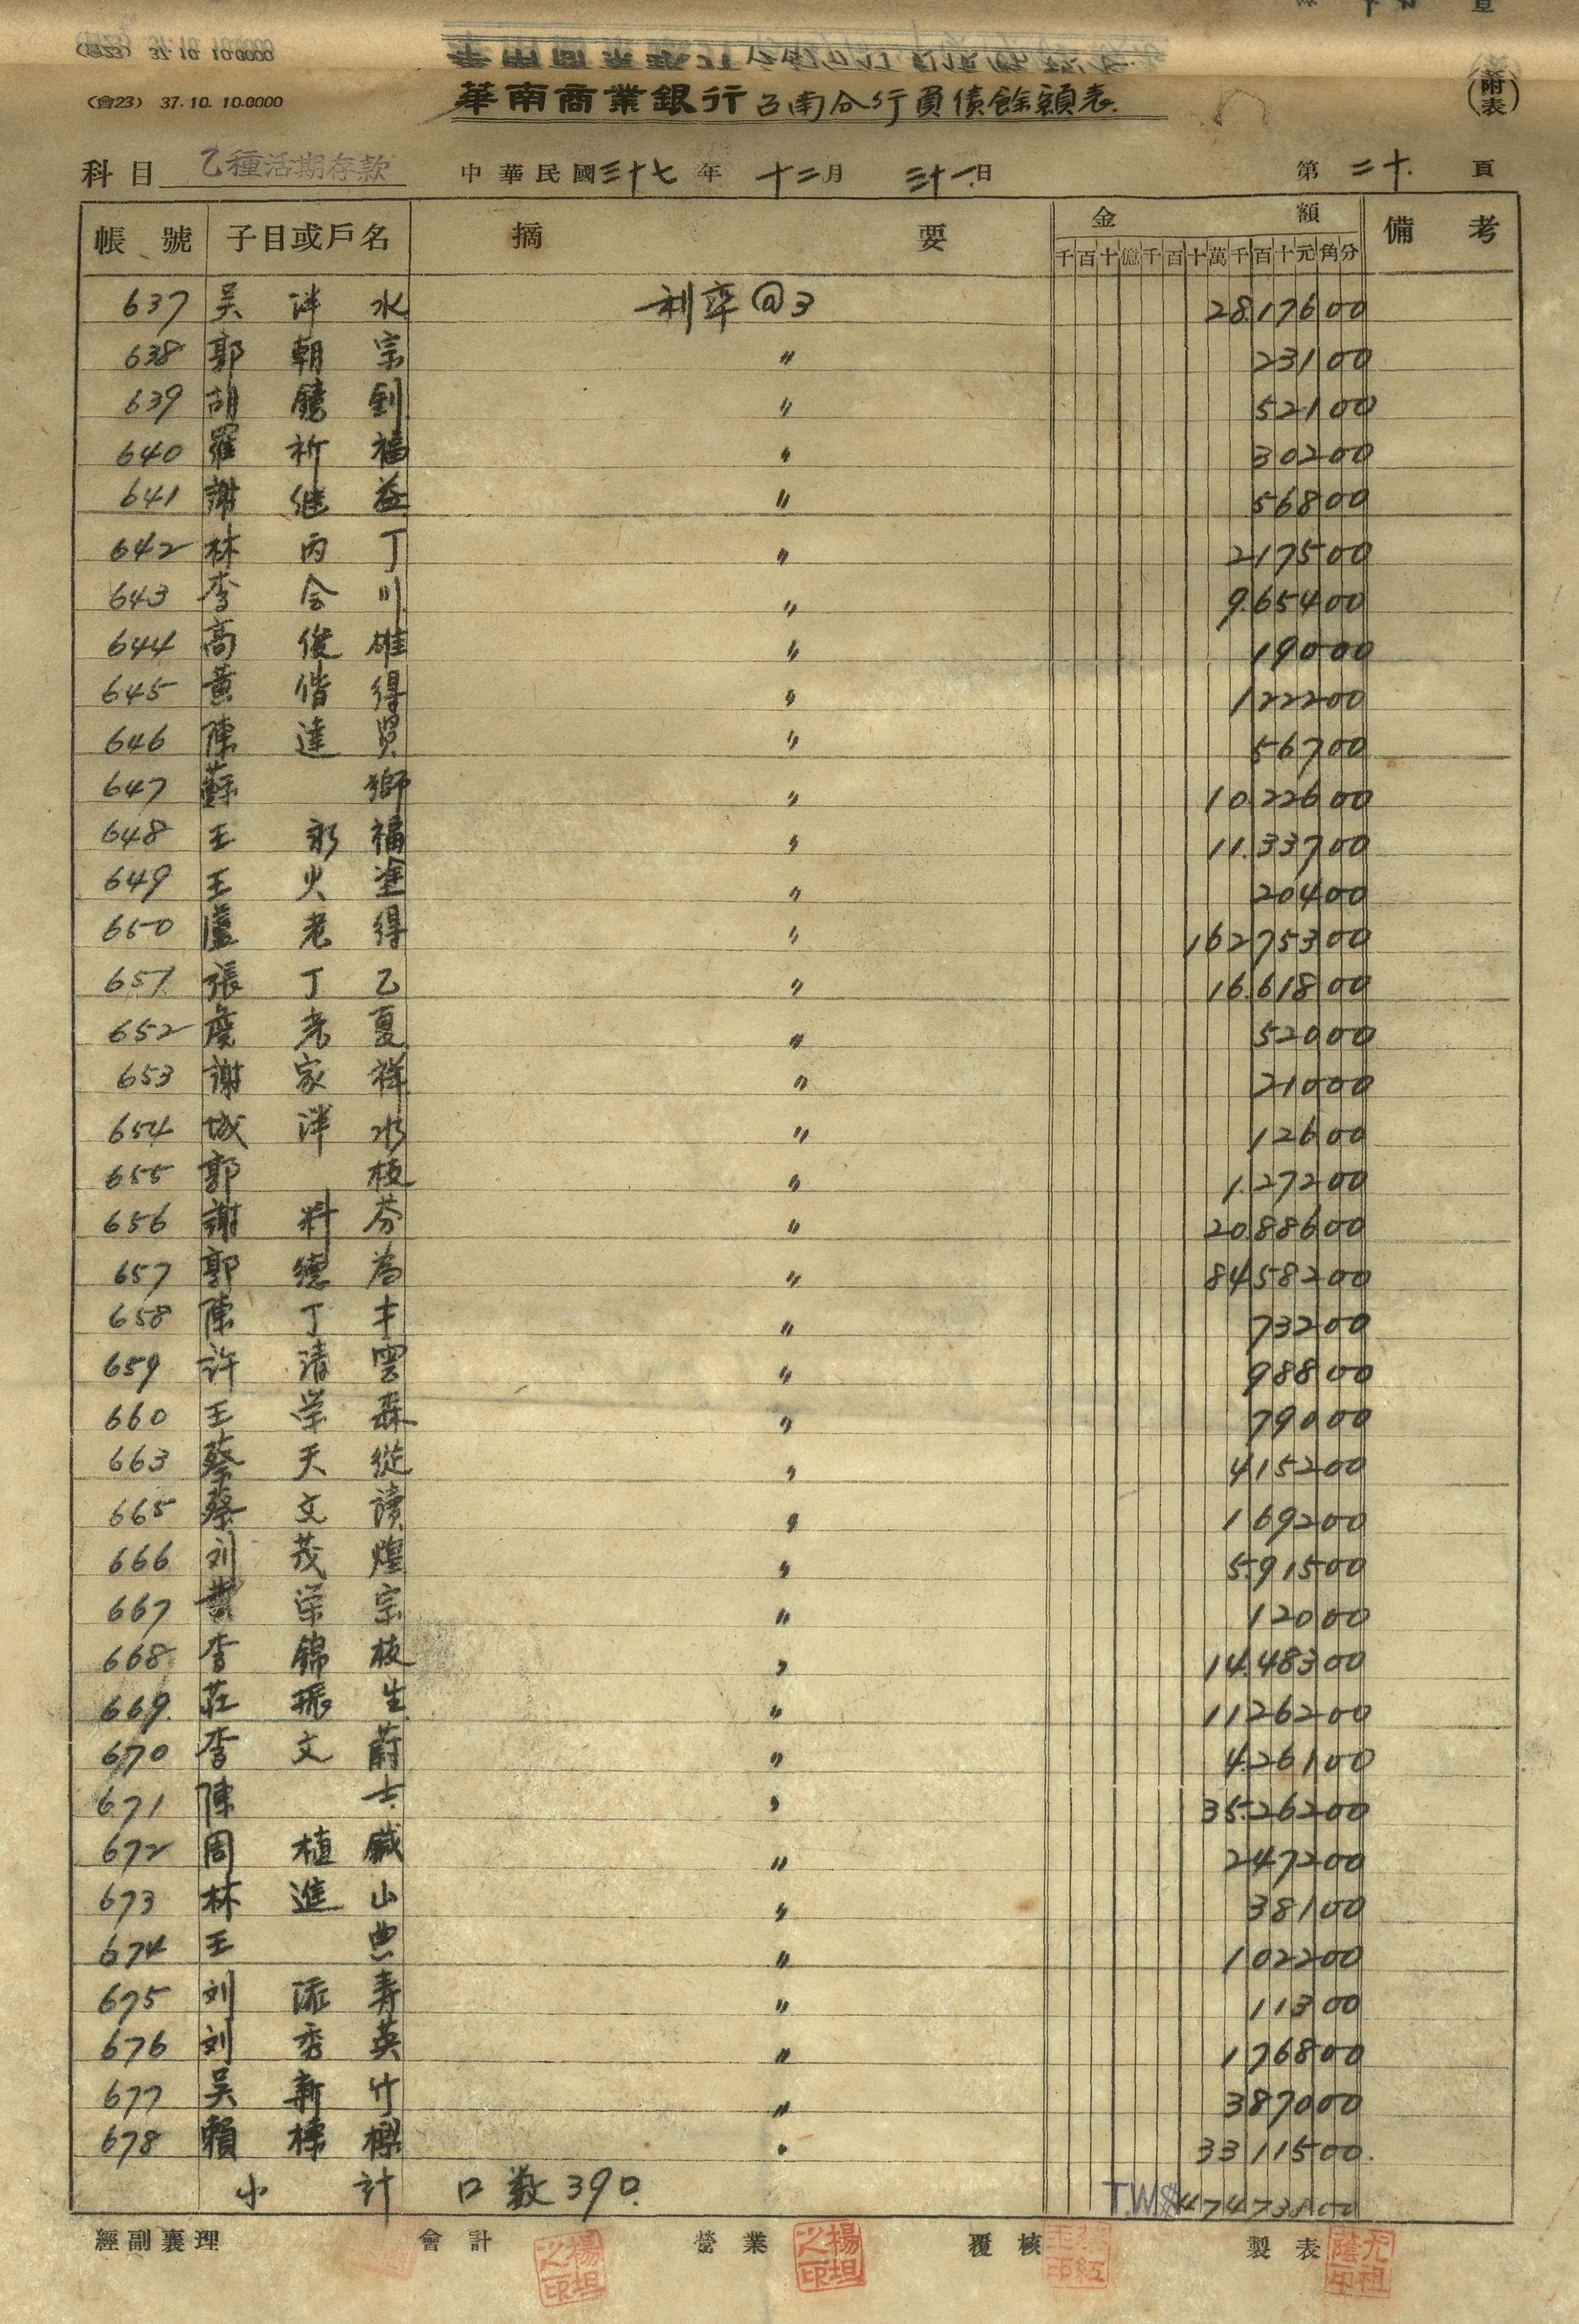 (會23) 37.10. 10.0000
華南商業銀行台南分行負債餘額表
(附表)
科目 乙種活期存款 中華民國三十七年 十二月 三十一日 第二十頁
帳號 子目或戶名 摘要 金額 備考
千百十億千百十萬千百十元角分
637 吳泮水 利率@3 28.17600
638 郭朝宗 〃 23100
639 胡鐃釗 〃 52100
640 羅祈福 〃 30200
641 謝继益 〃 56800
642 林丙丁 〃 217500
643 李含川 〃 9.65400
644 高俊雄 〃 19000
645 黃偕得 〃 122200
646 陳達貝 〃 56700
647 蘇獅 〃 10.22600
648 王永福 〃 11.33700
649 王火塗 〃 20400
650 盧老得 〃 16275300
651 張丁乙 〃 16.61800
652 老夏 〃 52000
653 謝家祥 〃 21000
654 城泮水 〃 12600
655 郭枝 〃 1.27200
656 謝料芬 〃 20.88600
657 郭德為 〃 8458200
658 陳丁丰 〃 73200
659 許清雲 〃 98800
660 王荣森 〃 79000
663 蔡天從 〃 415200
665 蔡文讀 〃 169200
666 刘茂煌 〃 5.91500
667 黃荣宗 〃 12000
668 李錦枝 〃 14.48300
669 莊振生 〃 1126200
670 李文蔚 〃 4.26100
671 陳士 〃 35.26200
672 周植 〃 247200
673 林進山 〃 38100
674 王典 〃 102200
675 刘添寿 〃 11300
676 刘秀英 〃 176800
677 吳新竹 〃 387000
678 賴標樑 〃 3311500
小計 口数39口. T.W$47473800
經副襄理 會計 營業 覆核 製表
楊坦之印 楊坦之印